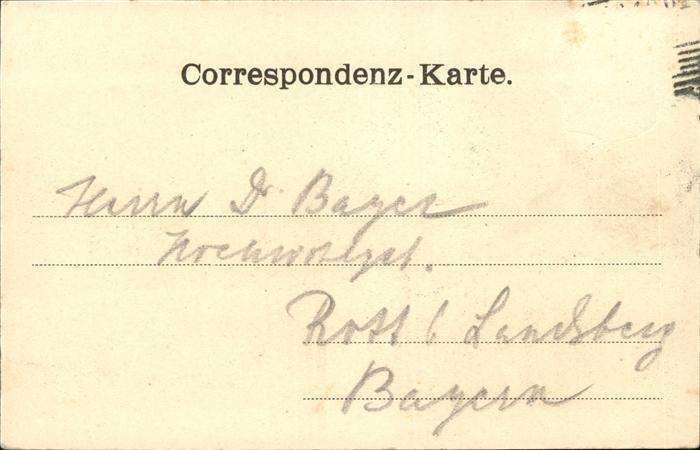 Correspondenz-Karte.
Herrn Dr Bayer
Hochwohlgeb.
Rott b Landsberg
Bayern